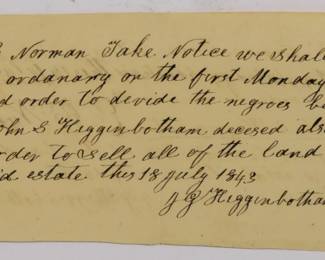 Norman Take Notice we shall
ordanary on the first Monday
order to devide the negroes b
John S Higginbotham decesed als
order to sell all of the land
id estate this 18 July 1843
J G Higginbotha